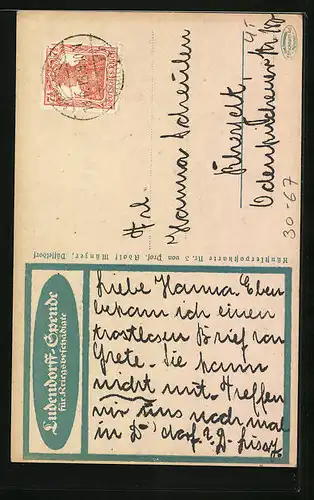 Ludendorff-Spende
für Kriegsbeschädigte
Liebe Hanna. Eben
bekam ich einen
trostlosen Brief von
Grete. Sie kann
nicht mit. Treffen
wir uns noch mal
in D'dorf?
Künstlerpostkarte Nr. 5 von Prof. Adolf Münzer, Düsseldorf
Frl.
Hanna
Rheydt,
30-67